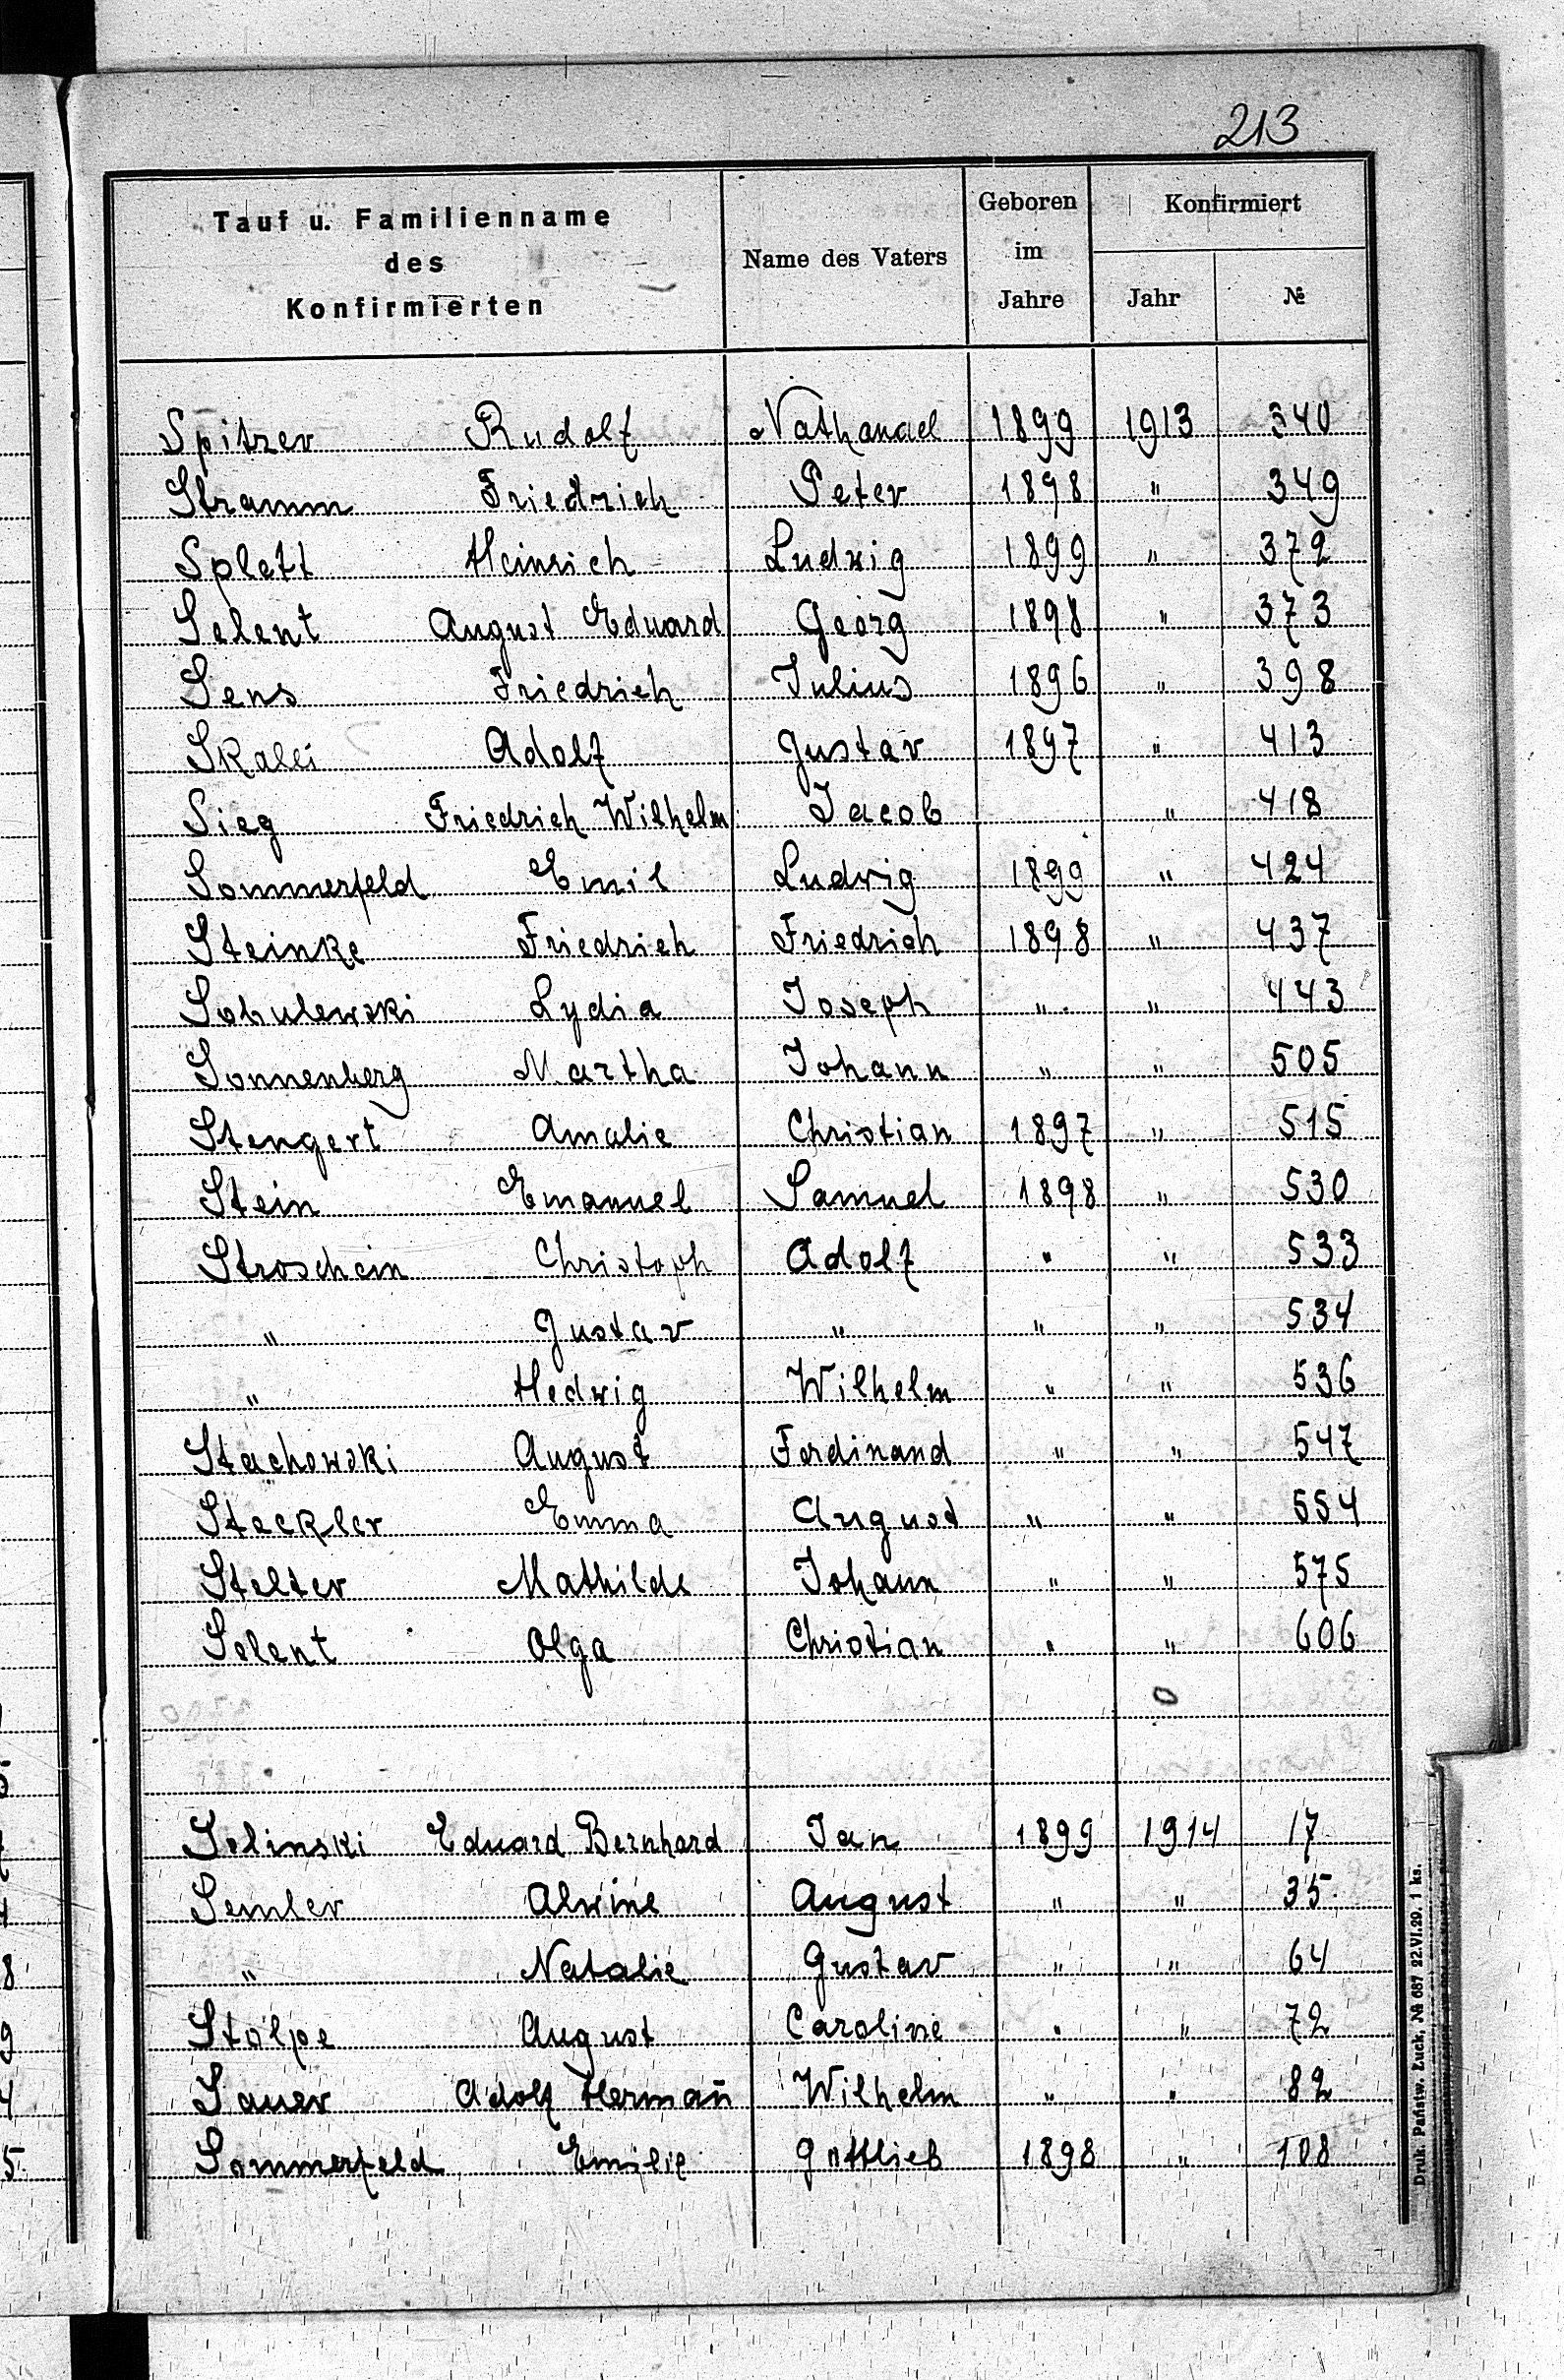 213
Tauf u. Familienname des Konfirmierten | Name des Vaters | Geboren im Jahre | Konfirmiert Jahr | №
Spitzer Rudolf Nathanael 1899 1913 340
Stramm Friedrich Peter 1898 " 349
Splett Heinrich Ludwig 1899 " 372
Selent August Eduard Georg 1898 " 373
Sens Friedrich Julius 1896 " 398
Skalei Adolf Gustav 1897 " 413
Sieg Friedrich Wilhelm Jacob " 418
Sommerfeld Emil Ludwig 1899 " 424
Steinke Friedrich Friedrich 1898 " 437
Sobulewski Lydia Joseph " " 443
Sonnenberg Martha Johann " " 505
Stengert Amalie Christian 1897 " 515
Stein Emanuel Samuel 1898 " 530
Stroschein Christoph Adolf " " 533
" Gustav " " " 534
" Hedwig Wilhelm " " 536
Stachowski August Ferdinand " " 547
Steckler Emma August " " 554
Stelter Mathilde Johann " " 575
Selent Olga Christian " " 606
Selinski Eduard Bernhard Jan 1899 1914 17
Semler Alwine August " " 35
" Natalie Gustav " " 64
Stolpe August Caroline " " 72
Sauer Adolf Herman̄ Wilhelm " " 82
Sommerfeld Emilie Gottlieb 1898 " 108
Druk. Państw. Łuck, № 687 22.VI.29. 1 ks.